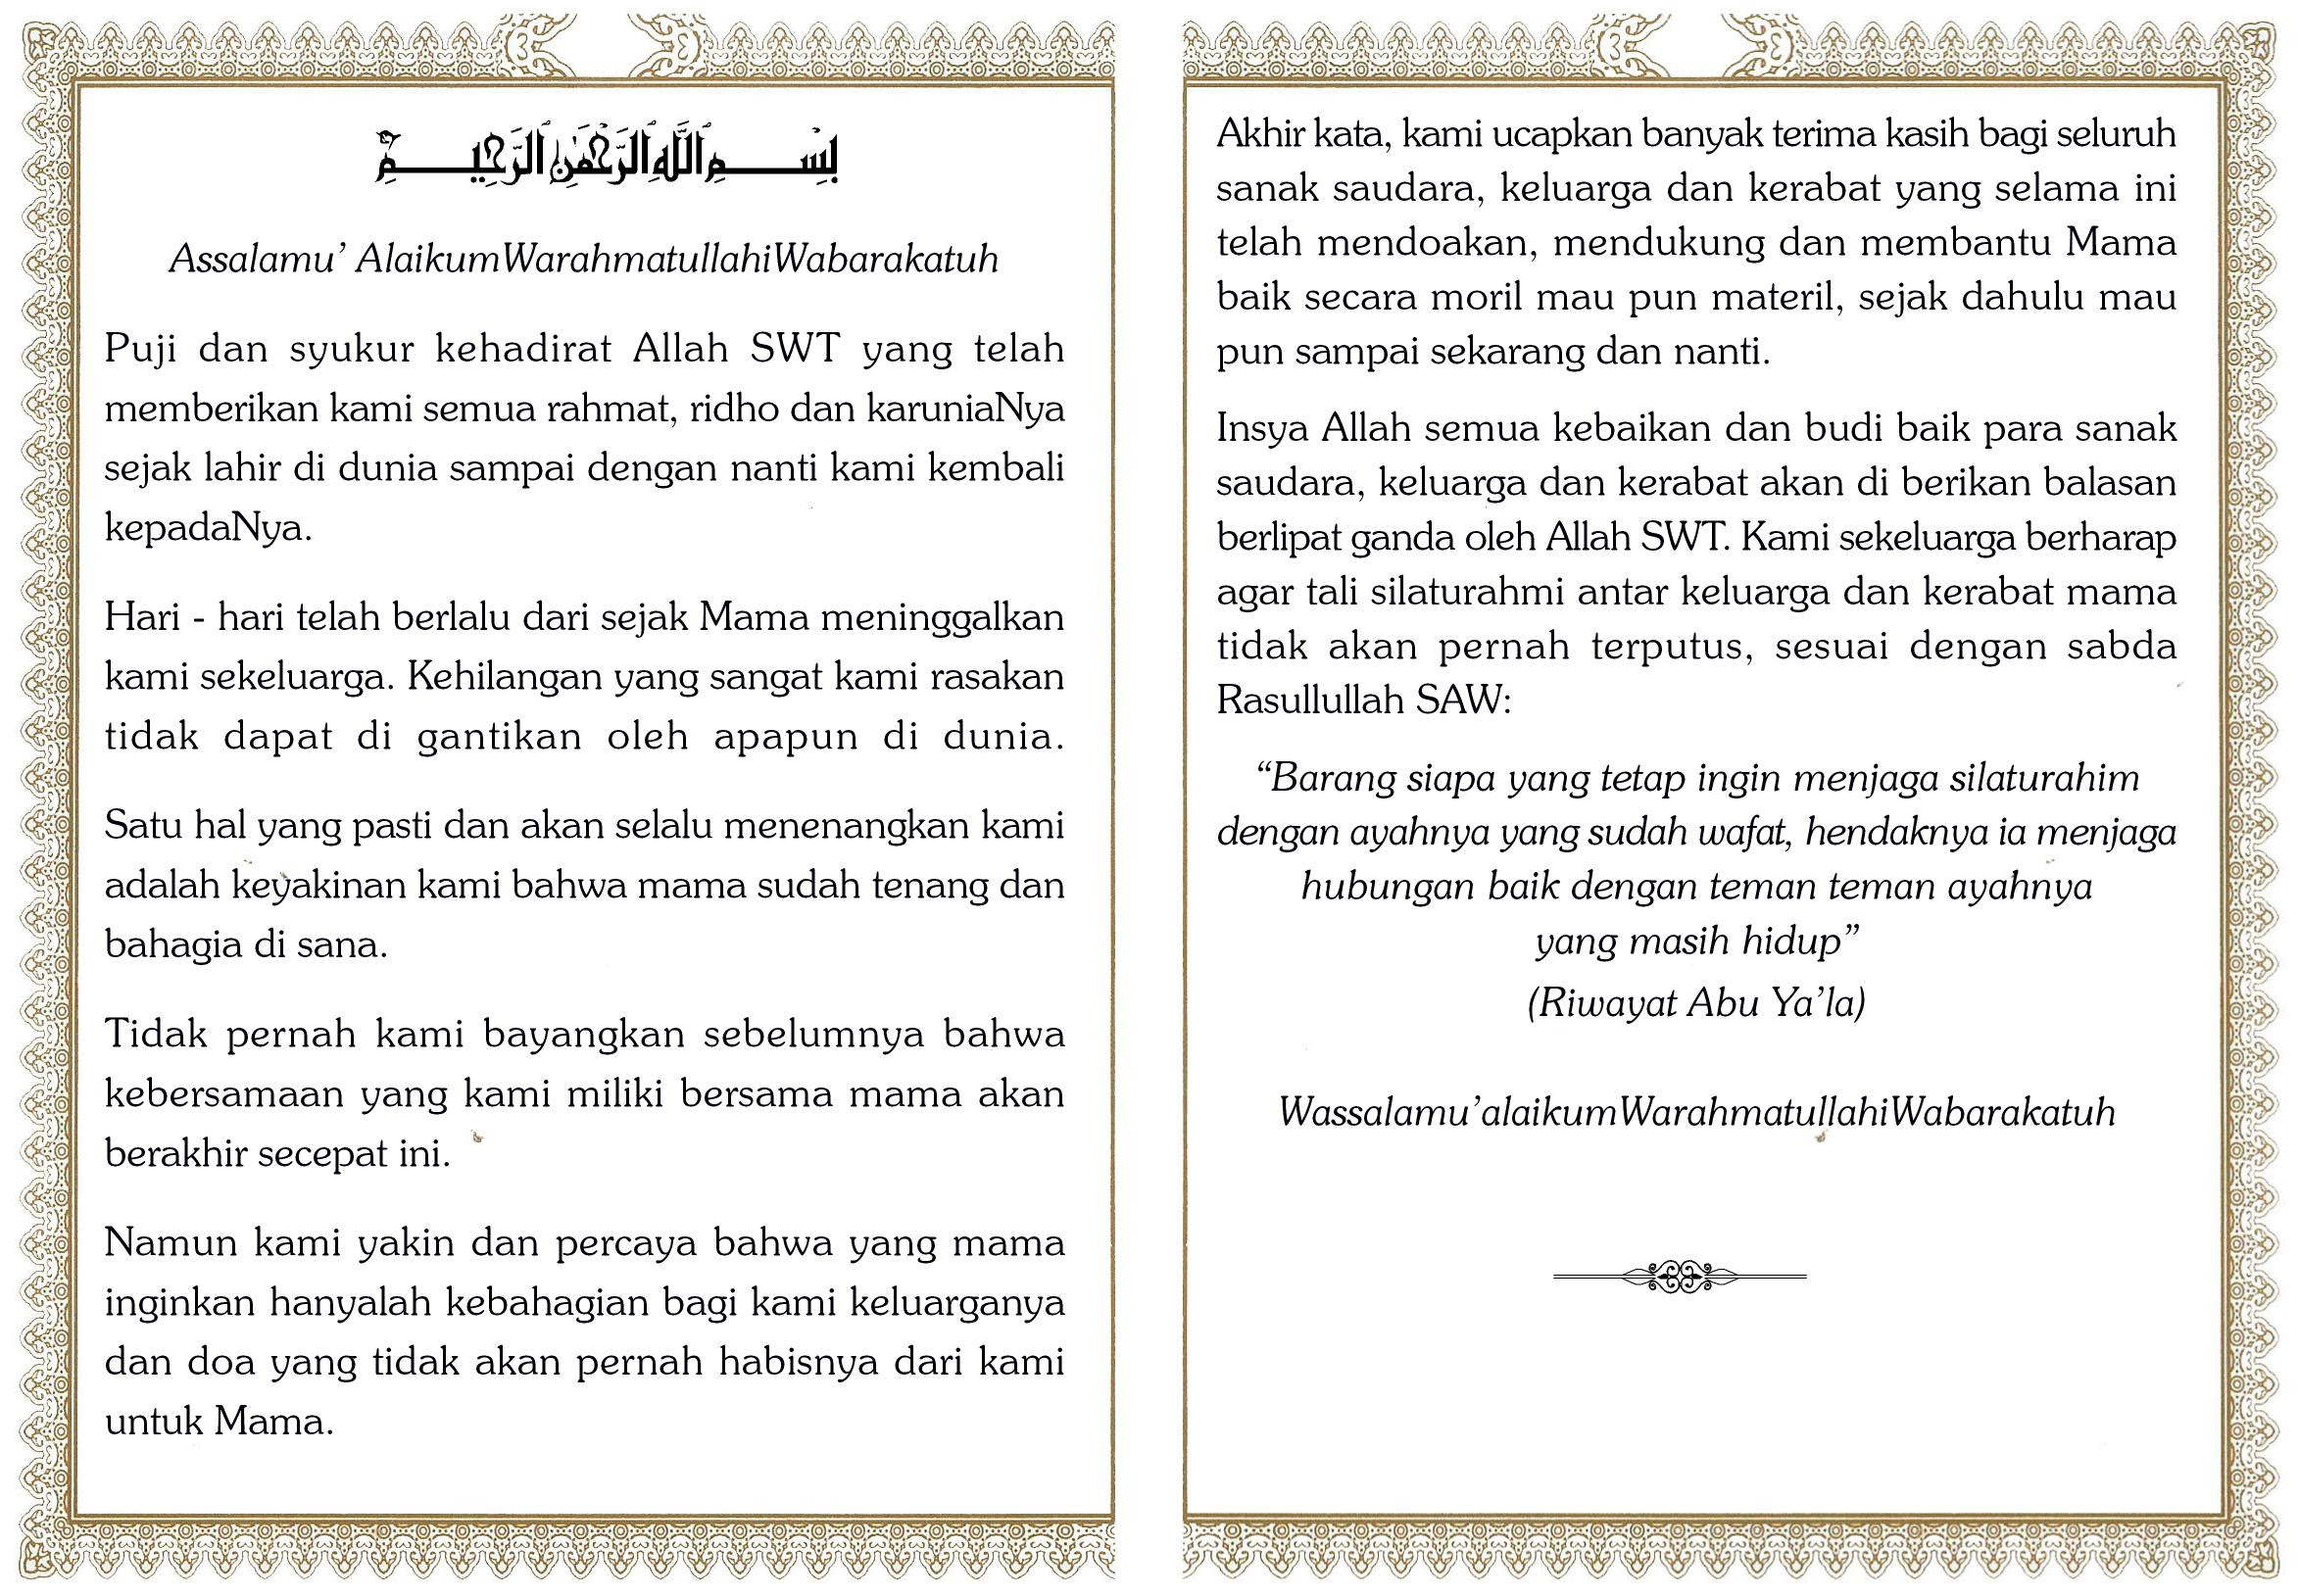 بِسْمِ ٱللَّهِ ٱلرَّحْمَٰنِ ٱلرَّحِيمِ
Assalamu’ AlaikumWarahmatullahiWabarakatuh
Puji dan syukur kehadirat Allah SWT yang telah
memberikan kami semua rahmat, ridho dan karuniaNya
sejak lahir di dunia sampai dengan nanti kami kembali
kepadaNya.
Hari - hari telah berlalu dari sejak Mama meninggalkan
kami sekeluarga. Kehilangan yang sangat kami rasakan
tidak dapat di gantikan oleh apapun di dunia.
Satu hal yang pasti dan akan selalu menenangkan kami
adalah keyakinan kami bahwa mama sudah tenang dan
bahagia di sana.
Tidak pernah kami bayangkan sebelumnya bahwa
kebersamaan yang kami miliki bersama mama akan
berakhir secepat ini.
Namun kami yakin dan percaya bahwa yang mama
inginkan hanyalah kebahagian bagi kami keluarganya
dan doa yang tidak akan pernah habisnya dari kami
untuk Mama.
Akhir kata, kami ucapkan banyak terima kasih bagi seluruh
sanak saudara, keluarga dan kerabat yang selama ini
telah mendoakan, mendukung dan membantu Mama
baik secara moril mau pun materil, sejak dahulu mau
pun sampai sekarang dan nanti.
Insya Allah semua kebaikan dan budi baik para sanak
saudara, keluarga dan kerabat akan di berikan balasan
berlipat ganda oleh Allah SWT. Kami sekeluarga berharap
agar tali silaturahmi antar keluarga dan kerabat mama
tidak akan pernah terputus, sesuai dengan sabda
Rasullullah SAW:
“Barang siapa yang tetap ingin menjaga silaturahim
dengan ayahnya yang sudah wafat, hendaknya ia menjaga
hubungan baik dengan teman teman ayahnya
yang masih hidup”
(Riwayat Abu Ya’la)
Wassalamu’alaikumWarahmatullahiWabarakatuh